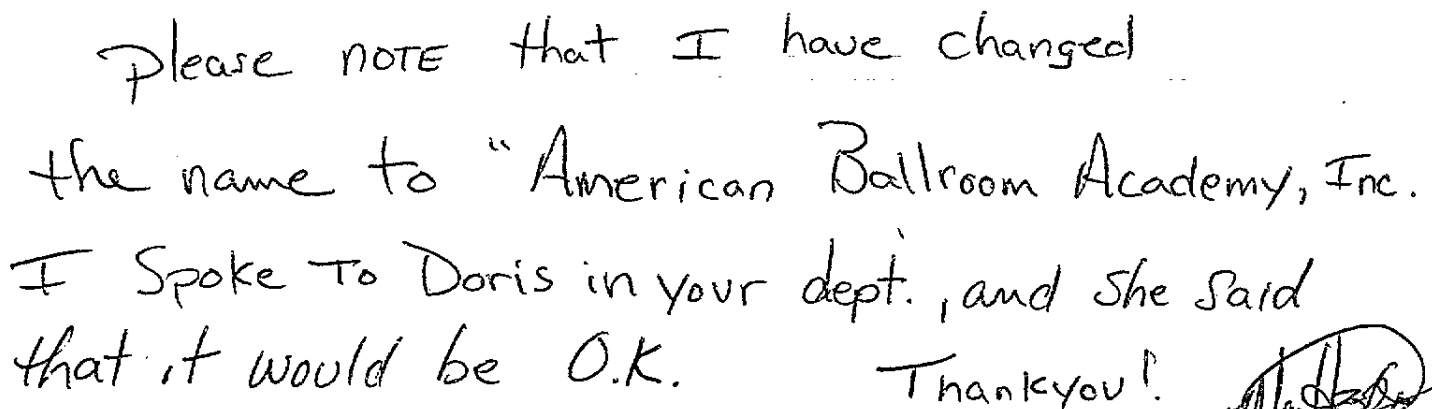 please NOTE that I have changed
the name to "American Ballroom Academy, Inc.
I Spoke To Doris in your dept., and she said
that it would be O.K. Thankyou!